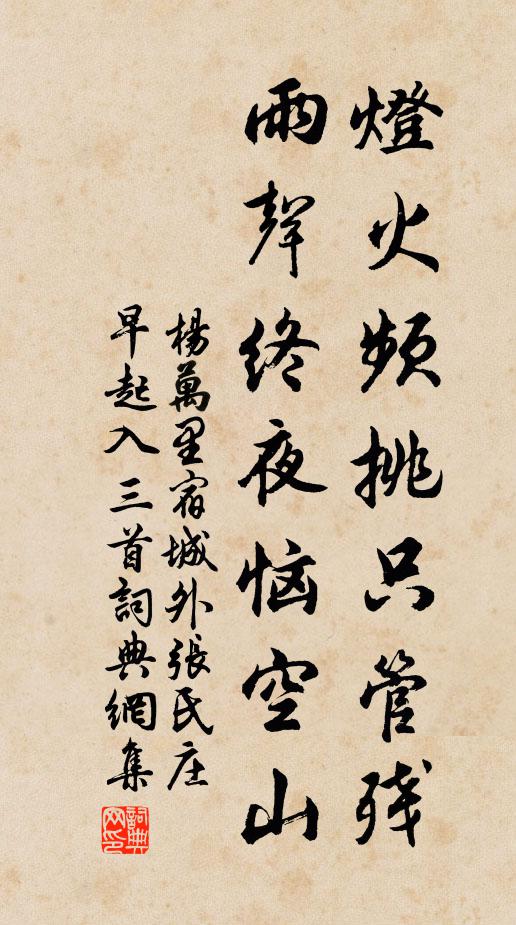 燈火頻挑只管残
雨聲終夜恼空山
楊萬里宿城外張氏庄
早起入三首詞典網集
詞典网印